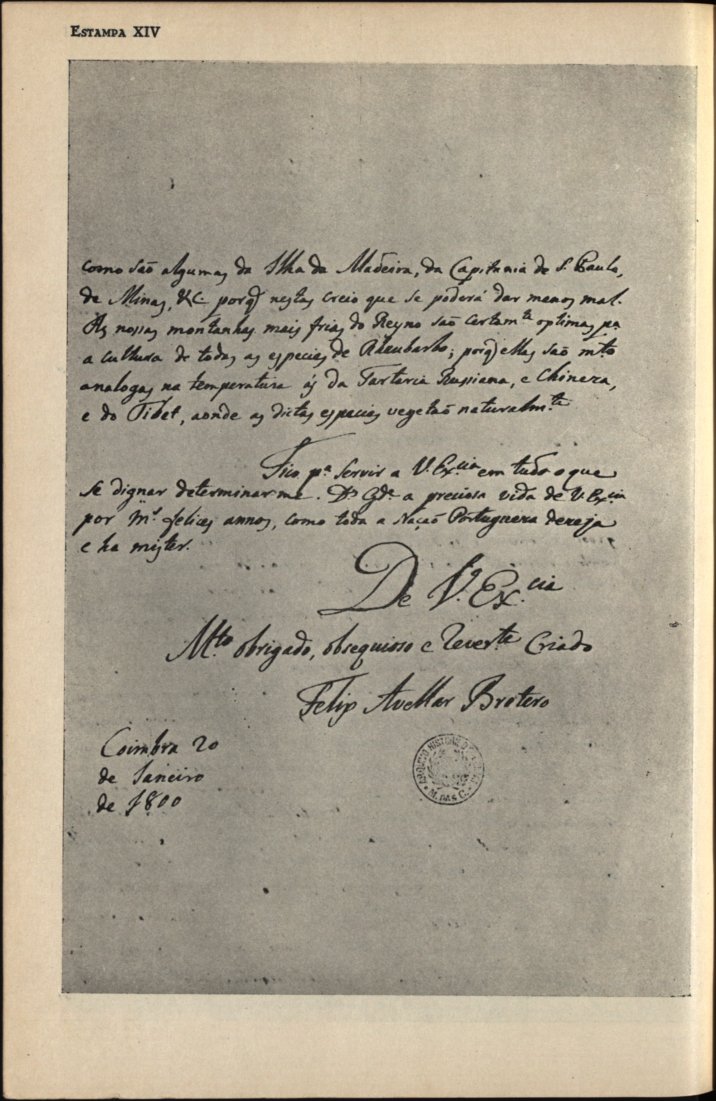 ESTAMPA XIV
como são algumas da Ilha da Madeira, da Capitania de S. Paulo,
de Minas, &C. porq̃ nestas creio que se poderá dar menos mal.
As nossas montanhas mais frias do Reyno são certam.te optimas p.a
a cultura de todas as especies de Rheubarbo; porq̃ ellas são m.to
analogas na temperatura ás da Tartaria Russiana, e Chineza,
e do Tibet, aonde as dictas especies vegetaõ naturalm.te
Fico p.a servir a V. Ex.cia em tudo o que
se dignar determinar me. D.s G.de a preciosa vida de V. Ex.cia
por m.s felices annos, como toda a Nação Portugueza deseja
e ha mister.
De V. Ex.cia
M.to obrigado, obsequioso e Rever.te Criado
Felix Avellar Brotero
Coimbra 20
de Janeiro
de 1800
ARQUIVO HISTORICO
M. DAS C.